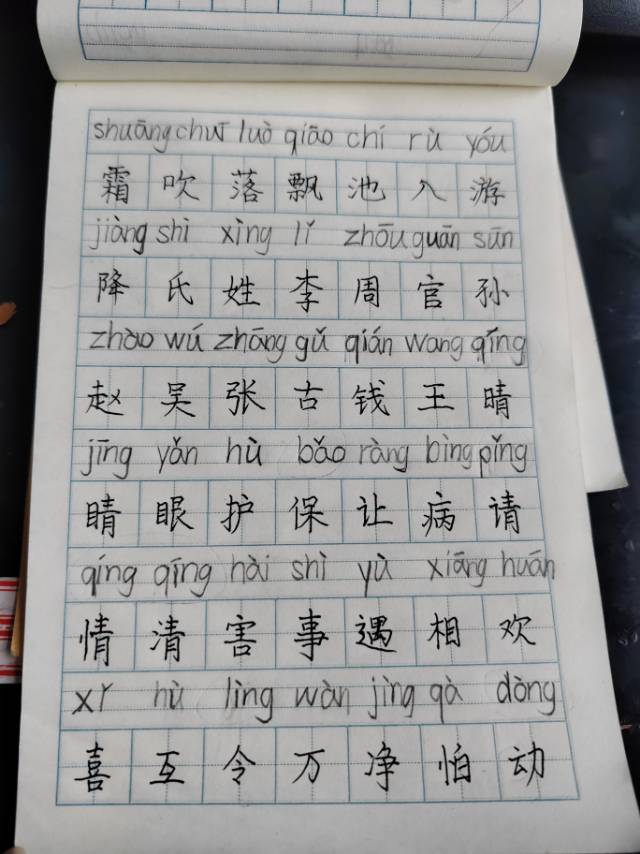 shuāng chuī luò qiāo chí rù yóu
霜 吹 落 飘 池 入 游
jiàng shì xìng lǐ zhōu guān sūn
降 氏 姓 李 周 官 孙
zhào wú zhāng gǔ qián wang qíng
赵 吴 张 古 钱 王 晴
jīng yǎn hù bǎo ràng bìng pǐng
睛 眼 护 保 让 病 请
qíng qīng hài shì yù xiāng huān
情 清 害 事 遇 相 欢
xǐ hù lìng wàn jìng qà dòng
喜 互 令 万 净 怕 动